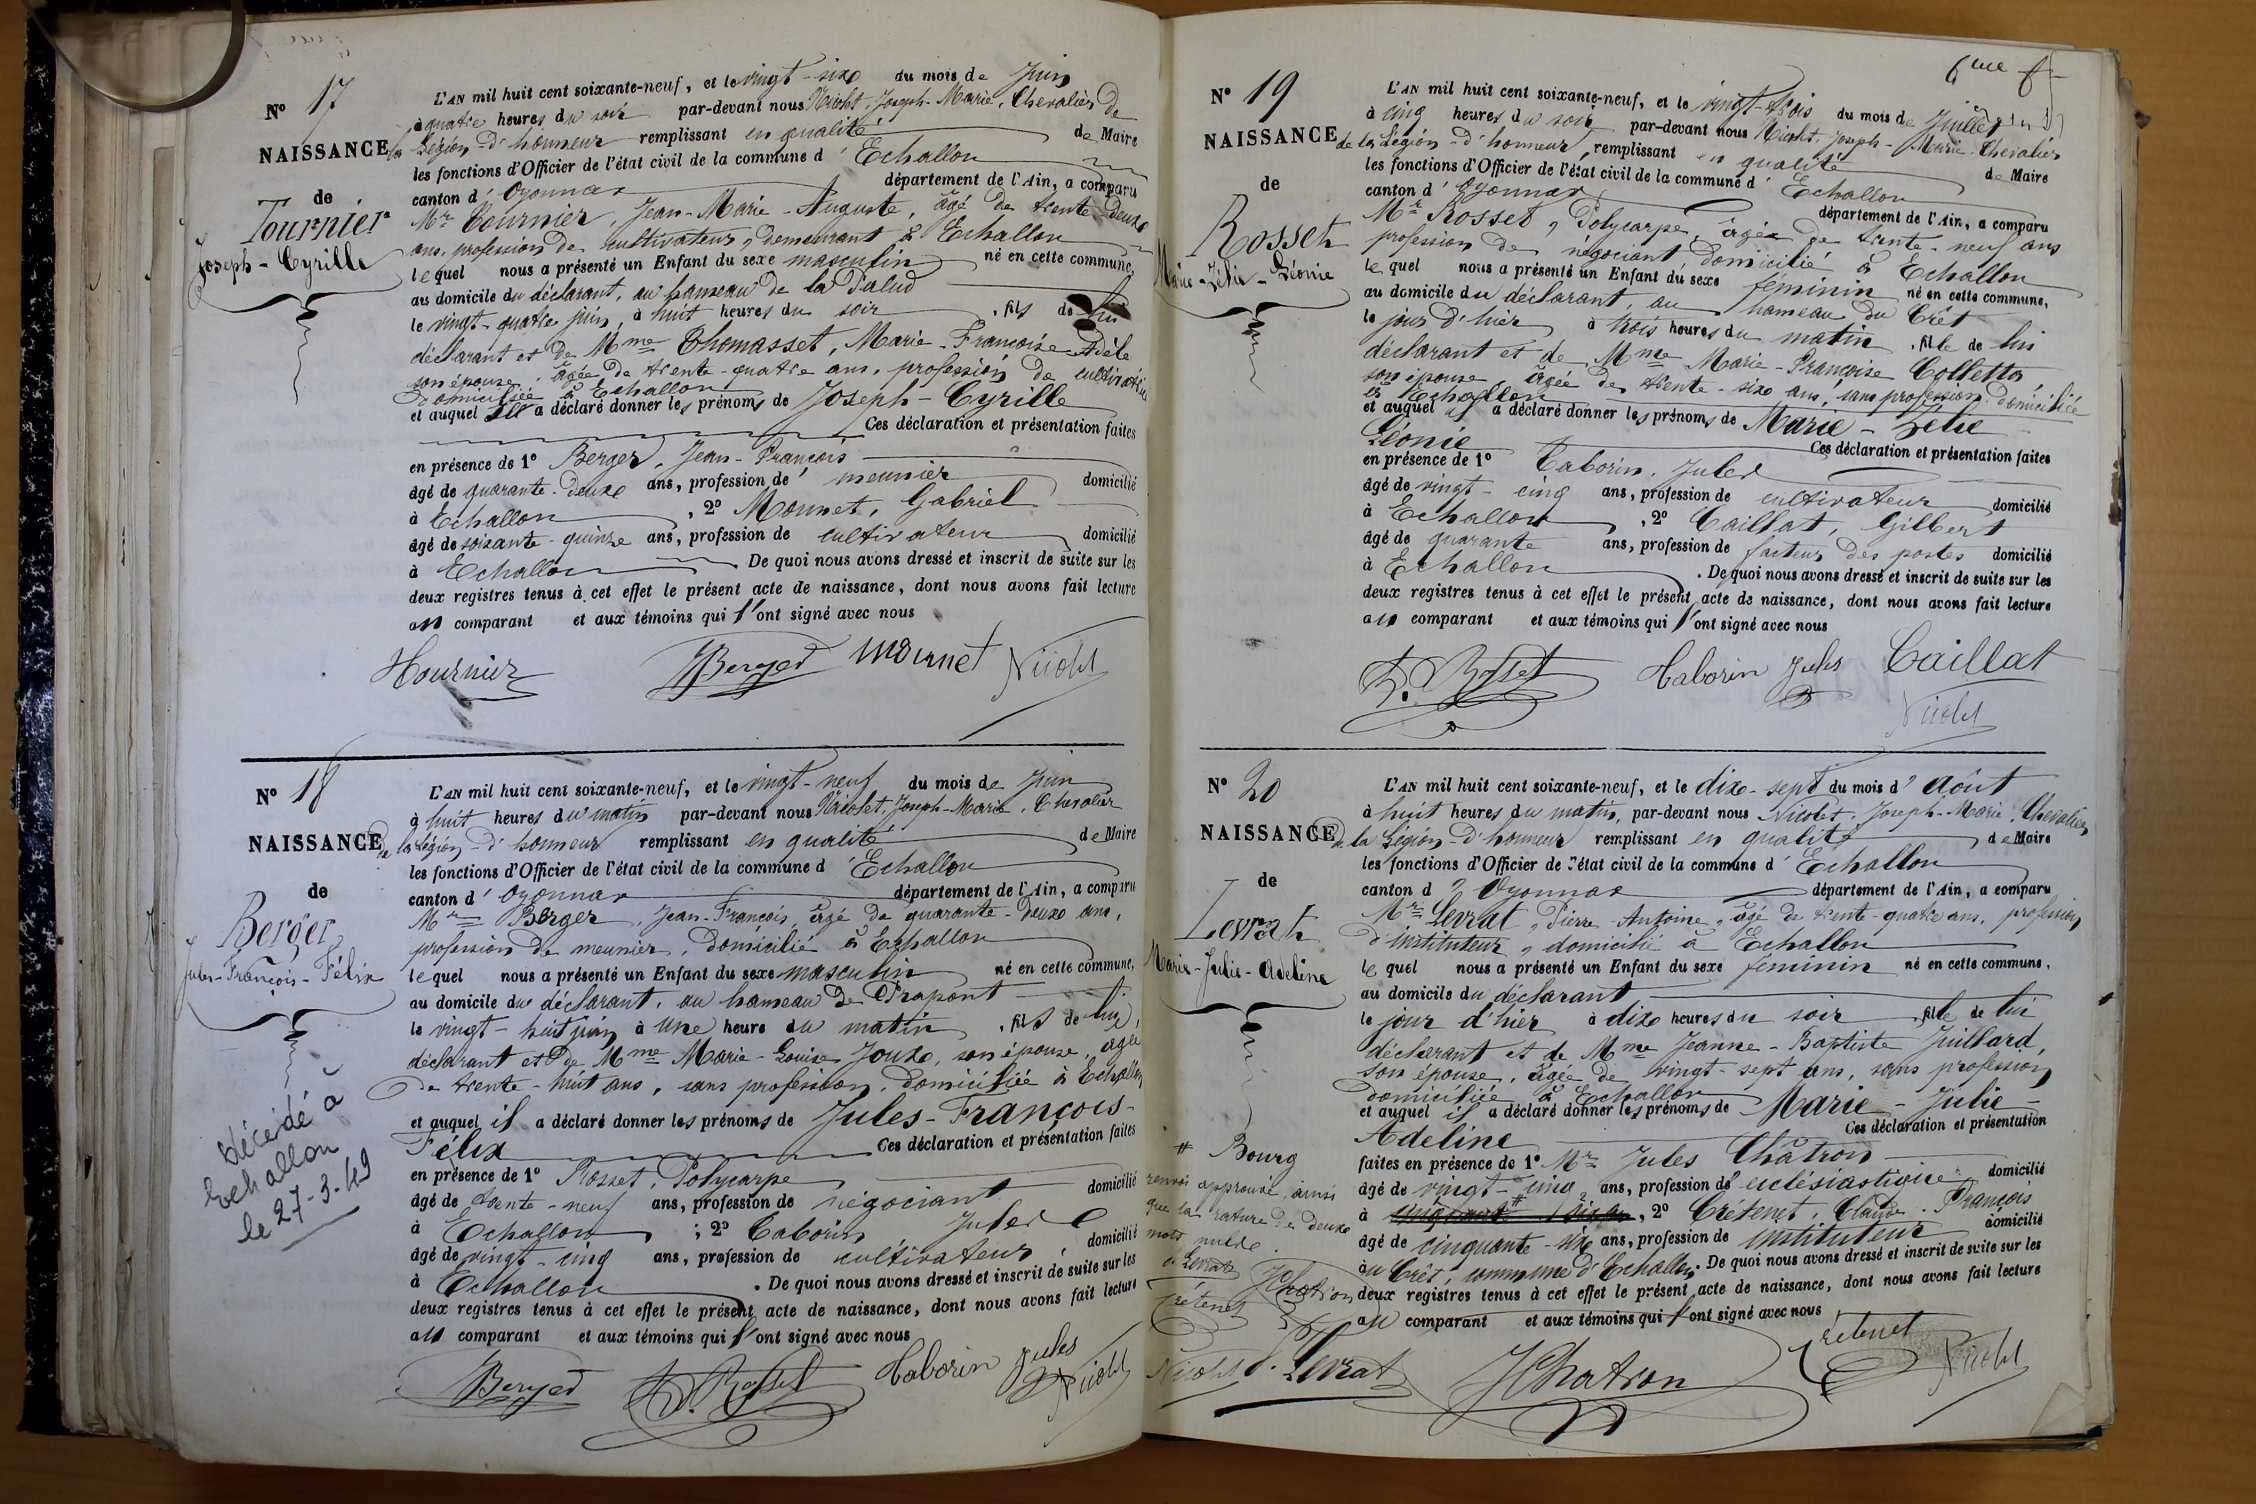 N° 17
NAISSANCE
de
Tournier
Joseph-Cyrille
L'AN mil huit cent soixante-neuf, et le vingt-six du mois de Juin
à quatre heures du soir par-devant nous Nicolet, Joseph-Marie, Chevalier de
la Légion-d'honneur remplissant en qualité de Maire
les fonctions d'Officier de l'état civil de la commune d'Echallon
canton d'Oyonnax département de l'Ain, a comparu
Mr Tournier, Jean-Marie-Auguste, âgé de trente-deux
ans, profession de cultivateur, demeurant à Echallon
lequel nous a présenté un Enfant du sexe masculin né en cette commune,
au domicile du déclarant, au hameau de la Palud
le vingt-quatre juin, à huit heures du soir, fils de lui
déclarant et de Mme Thomasset, Marie-Françoise-Adèle
son épouse, âgée de trente-quatre ans, profession de cultivatrice
domiciliée à Echallon
et auquel il a déclaré donner les prénoms de Joseph-Cyrille
Ces déclaration et présentation faites
en présence de 1° Berger, Jean-François
âgé de quarante-deux ans, profession de meunier domicilié
à Echallon, 2° Mounet, Gabriel
âgé de soixante-quinze ans, profession de cultivateur domicilié
à Echallon De quoi nous avons dressé et inscrit de suite sur les
deux registres tenus à cet effet le présent acte de naissance, dont nous avons fait lecture
au comparant et aux témoins qui l'ont signé avec nous
Tournier JBerger mounet Nicolet
N° 18
NAISSANCE
de
Berger
Jules-François-Félix
L'AN mil huit cent soixante-neuf, et le vingt-neuf du mois de Juin
à huit heures du matin par-devant nous Nicolet, Joseph-Marie, Chevalier
de la Légion-d'honneur remplissant en qualité de Maire
les fonctions d'Officier de l'état civil de la commune d'Echallon
canton d'Oyonnax département de l'Ain, a comparu
Mr Berger, Jean-François, âgé de quarante-deux ans,
profession de meunier, domicilié à Echallon
lequel nous a présenté un Enfant du sexe masculin né en cette commune,
au domicile du déclarant, au hameau de Prapont
le vingt-huit juin à une heure du matin, fils de lui,
déclarant et de Mme Marie-Louise Joux, son épouse, âgée
de trente-huit ans, sans profession, domiciliée à Echallon
et auquel il a déclaré donner les prénoms de Jules-François-
Félix Ces déclaration et présentation faites
en présence de 1° Rosset, Polycarpe
âgé de trente-neuf ans, profession de négociant domicilié
à Echallon; 2° Taborin Jules
âgé de vingt-cinq ans, profession de cultivateur domicilié
à Echallon. De quoi nous avons dressé et inscrit de suite sur les
deux registres tenus à cet effet le présent acte de naissance, dont nous avons fait lecture
au comparant et aux témoins qui l'ont signé avec nous
décédé à
Echallon
le 27-3-49
JBerger P. Rosset Taborin Jules Nicolet
N° 19
NAISSANCE
de
Rosset
Marie-Zélie-Léonie
L'AN mil huit cent soixante-neuf, et le vingt-trois du mois de Juillet
à cinq heures du soir par-devant nous Nicolet, Joseph-Marie, Chevalier
de la Légion-d'honneur, remplissant en qualité de Maire
les fonctions d'Officier de l'état civil de la commune d'Echallon
canton d'Oyonnax département de l'Ain, a comparu
Mr Rosset, Polycarpe, âgé de trente-neuf ans
profession de négociant domicilié à Echallon
lequel nous a présenté un Enfant du sexe féminin né en cette commune,
au domicile du déclarant, au hameau du Crêt
le jour d'hier à trois heures du matin, fille de lui
déclarant et de Mme Marie-Françoise Colletta
son épouse âgée de trente-six ans, sans profession domiciliée
à Echallon
et auquel il a déclaré donner les prénoms de Marie-Zélie
Léonie Ces déclaration et présentation faites
en présence de 1° Taborin, Jules
âgé de vingt-cinq ans, profession de cultivateur domicilié
à Echallon, 2° Caillat, Gilbert
âgé de quarante ans, profession de facteur des postes domicilié
à Echallon. De quoi nous avons dressé et inscrit de suite sur les
deux registres tenus à cet effet le présent acte de naissance, dont nous avons fait lecture
au comparant et aux témoins qui l'ont signé avec nous
P. Rosset Taborin Jules Caillat
Nicolet
N° 20
NAISSANCE
de
Levrat
Marie-Julie-Adeline
L'AN mil huit cent soixante-neuf, et le dix-sept du mois d'Août
à huit heures du matin, par-devant nous Nicolet, Joseph-Marie, Chevalier
de la Légion-d'honneur remplissant en qualité de Maire
les fonctions d'Officier de l'état civil de la commune d'Echallon
canton d'Oyonnax département de l'Ain, a comparu
Mr Levrat, Pierre-Antoine, âgé de trente-quatre ans, profession
d'instituteur, domicilié à Echallon
lequel nous a présenté un Enfant du sexe féminin né en cette commune,
au domicile du déclarant
le jour d'hier à dix heures du soir, fille de lui
déclarant et de Mme Jeanne-Baptiste Juillard,
son épouse, âgée de vingt-sept ans, sans profession,
domiciliée à Echallon
et auquel il a déclaré donner les prénoms de Marie-Julie-
Adeline Ces déclaration et présentation
faites en présence de 1° Mr Jules Châtron
âgé de vingt-cinq ans, profession de ecclésiastique domicilié
à #, 2° Crétenet, Claude-François
âgé de cinquante-six ans, profession de instituteur domicilié
au Crêt, commune d'Echallon. De quoi nous avons dressé et inscrit de suite sur les
deux registres tenus à cet effet le présent acte de naissance, dont nous avons fait lecture
au comparant et aux témoins qui l'ont signé avec nous
# Bourg
renvoi approuvé, ainsi
que la rature de deux
mots nuls.
Levrat
JChatron
Crétenet
Nicolet Levrat JChatron Crétenet Nicolet